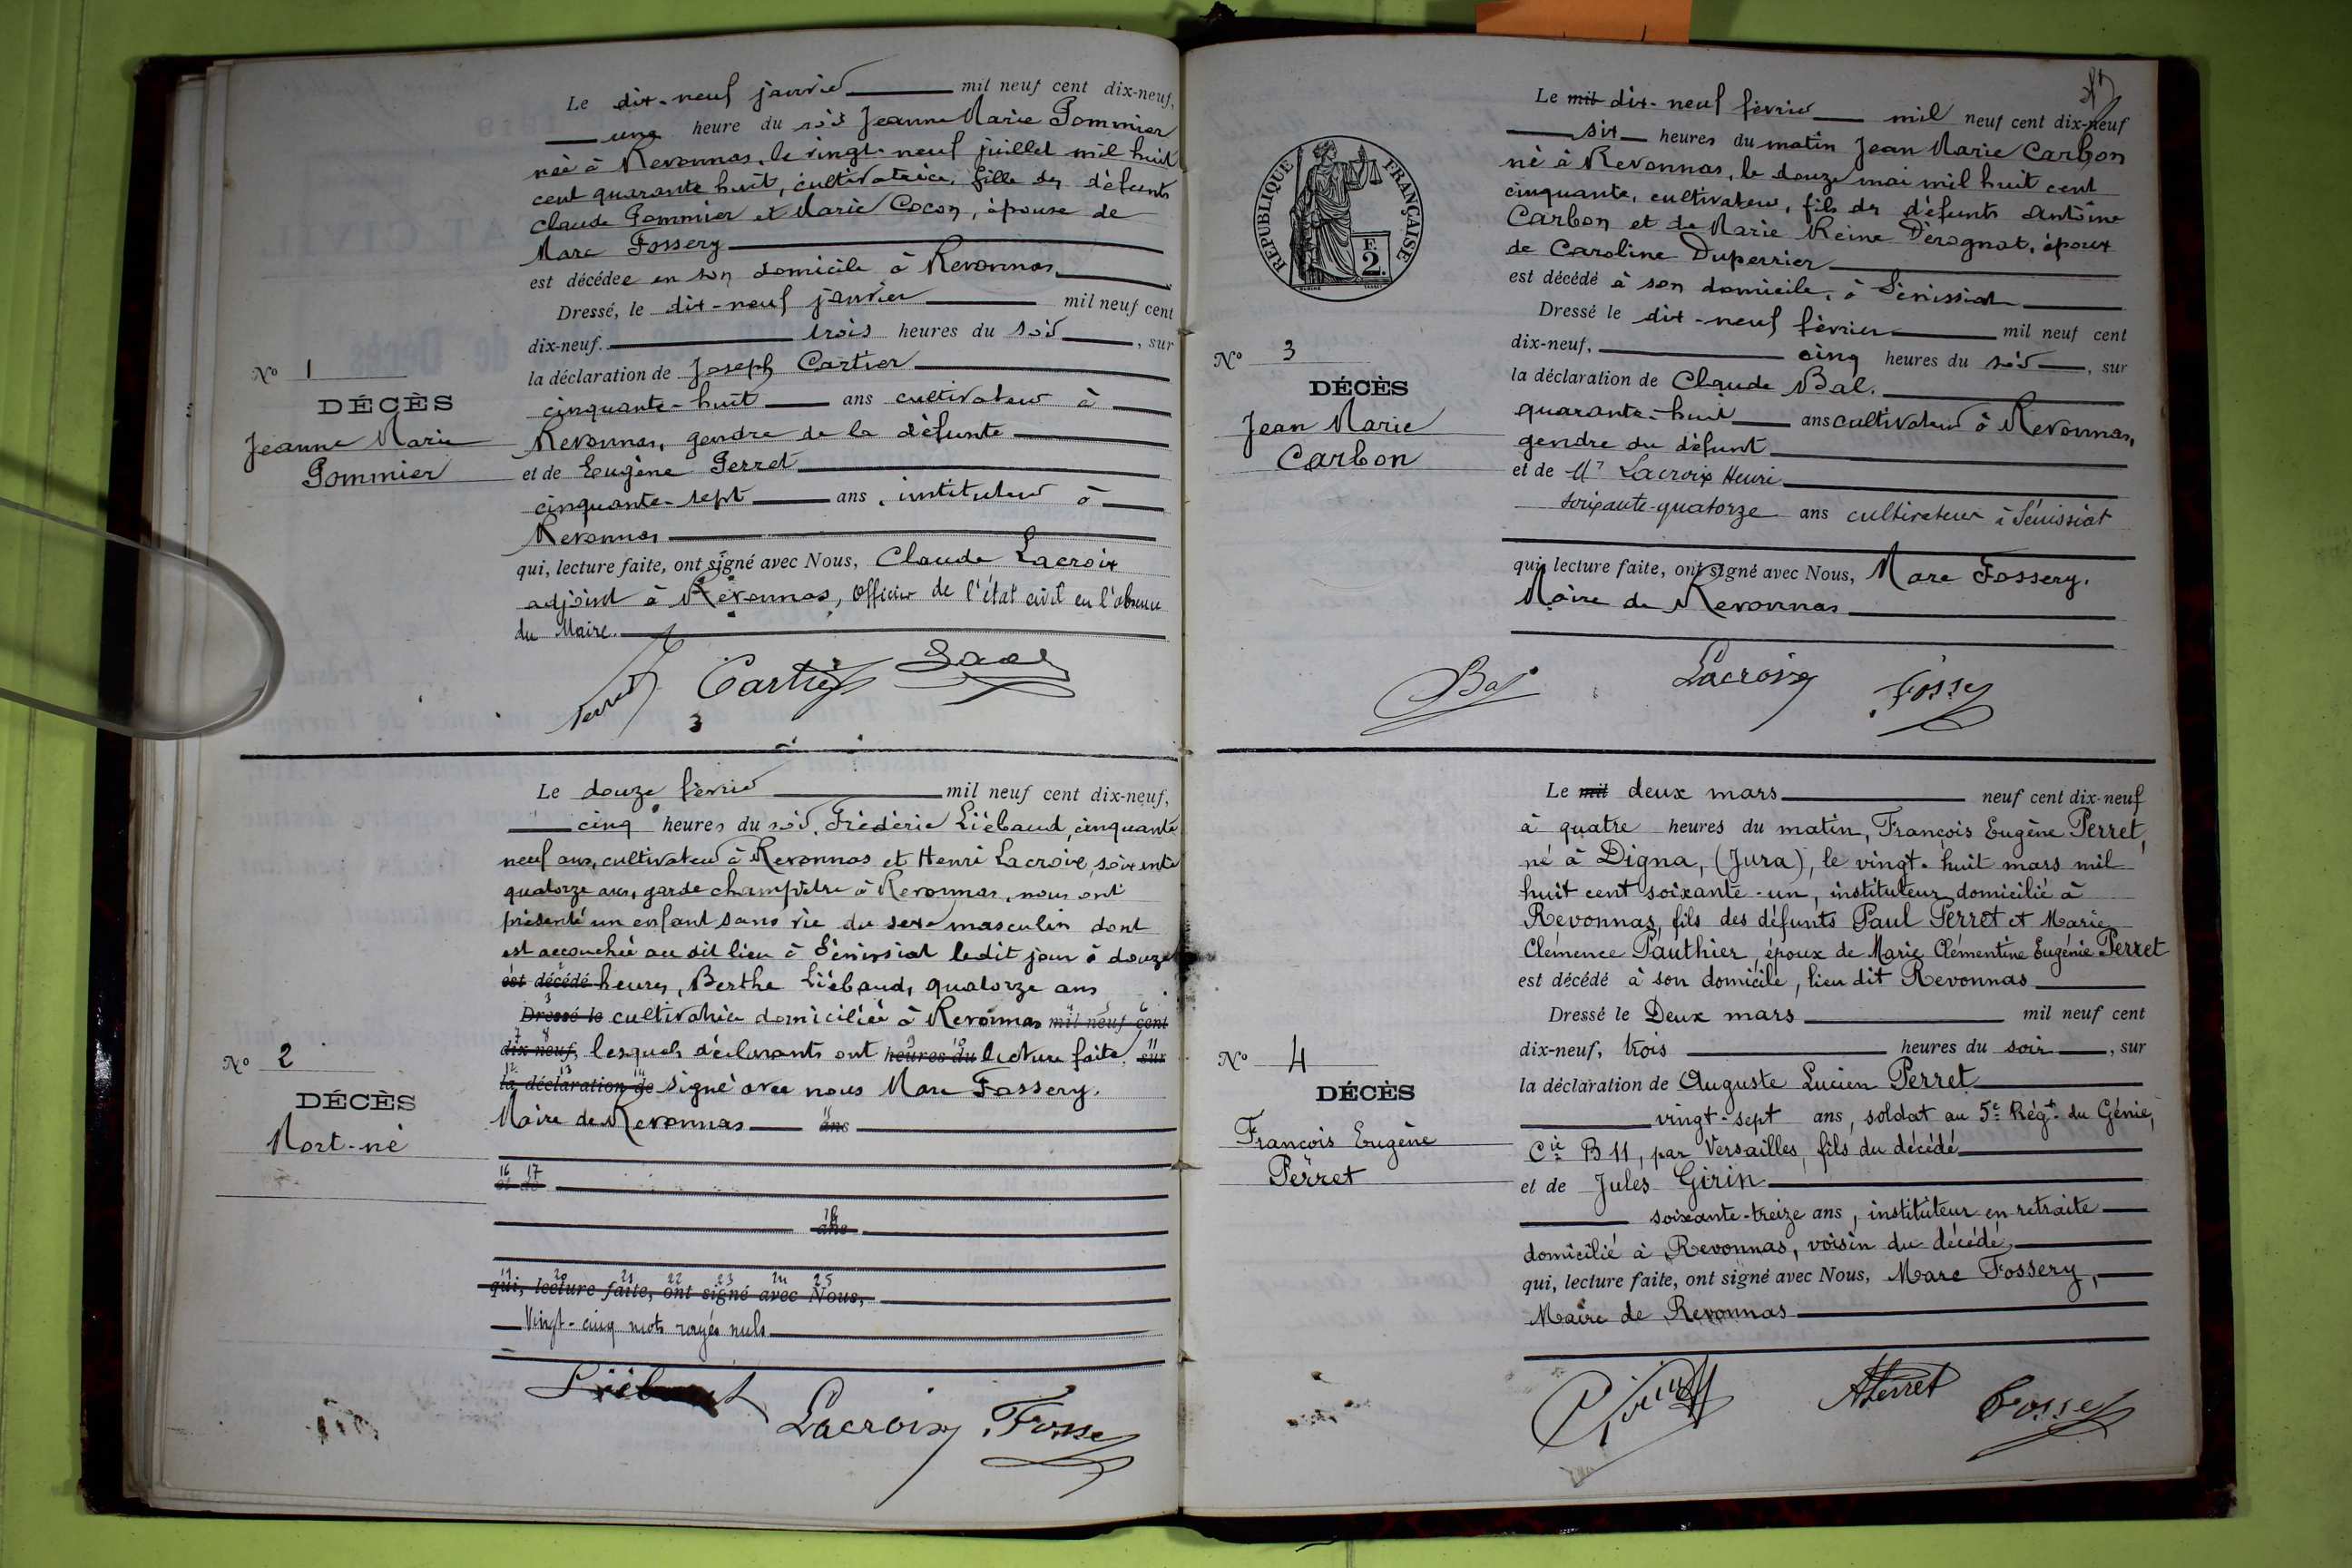 Le dix-neuf janvier mil neuf cent dix-neuf,
une heure du soir Jeanne Marie Pommier
née à Revonnas, le vingt-neuf juillet mil huit
cent quarante huit, cultivatrice, fille des défunts
Claude Pommier et Marie Cocon, épouse de
Marc Fossery
est décédée en son domicile à Revonnas
Dressé, le dix-neuf janvier mil neuf cent
dix-neuf. trois heures du soir, sur
la déclaration de Joseph Cartier
cinquante-huit ans cultivateur à
Revonnas, gendre de la défunte
et de Eugène Perret
cinquante-sept ans, instituteur à
Revonnas
qui, lecture faite, ont signé avec Nous, Claude Lacroix
adjoint à Revonnas, officier de l'état civil en l'absence
du Maire.
N° 1
DÉCÈS
Jeanne Marie
Pommier
Perret Cartier
3
Le douze février mil neuf cent dix-neuf,
cinq heures du soir, Frédéric Liébaud, cinquante
neuf ans, cultivateur à Revonnas et Henri Lacroix, soixante
quatorze ans, garde champêtre à Revonnas, nous ont
présenté un enfant sans vie du sexe masculin dont
est accouchée au dit lieu à Sénissiat ledit jour à douze
est décédé heures, Berthe Liébaud, quatorze ans
Dressé le cultivatrice domiciliée à Revonnas mil neuf cent
dix-neuf, lesquels déclarants ont heures du lecture faite, sur
la déclaration de signé avec nous Marc Fossery.
Maire de Revonnas ans
16 17
et de
18
ans
19 20 21 22 23 24 25
qui, lecture faite, ont signé avec Nous,
Vingt-cinq mots rayés nuls
N° 2
DÉCÈS
Mort-né
Liébaud Lacroix Fossery
Le mil dix-neuf février mil neuf cent dix-neuf
six heures du matin Jean Marie Carbon
né à Revonnas, le douze mai mil huit cent
cinquante, cultivateur, fils des défunts Antoine
Carbon et de Marie Reine Dérognat, époux
de Caroline Duperrier
est décédé à son domicile, à Sénissiat
Dressé le dix-neuf février mil neuf cent
dix-neuf, cinq heures du soir, sur
la déclaration de Claude Bal.
quarante-huit ans cultivateur à Revonnas,
gendre du défunt
et de Lacroix Henri
soixante-quatorze ans cultivateur à Sénissiat
qui, lecture faite, ont signé avec Nous, Marc Fossery.
Maire de Revonnas
RÉPUBLIQUE FRANÇAISE
F.
2.
N° 3
DÉCÈS
Jean Marie
Carbon
Bal Lacroix Fossery
Le mil deux mars neuf cent dix-neuf
à quatre heures du matin, François Eugène Perret,
né à Digna, (Jura), le vingt-huit mars mil
huit cent soixante-un, instituteur domicilié à
Revonnas, fils des défunts Paul Perret et Marie
Clémence Pauthier, époux de Marie Clémentine Eugénie Perret
est décédé à son domicile, lieu dit Revonnas
Dressé le Deux mars mil neuf cent
dix-neuf, trois heures du soir, sur
la déclaration de Auguste Lucien Perret
vingt-sept ans, soldat au 5e Régt du Génie,
Cie B 11, par Versailles, fils du décédé
et de Jules Girin
soixante-treize ans, instituteur en retraite
domicilié à Revonnas, voisin du décédé,
qui, lecture faite, ont signé avec Nous, Marc Fossery,
Maire de Revonnas
N° 4
DÉCÈS
François Eugène
Perret
Girin APerret Fossery